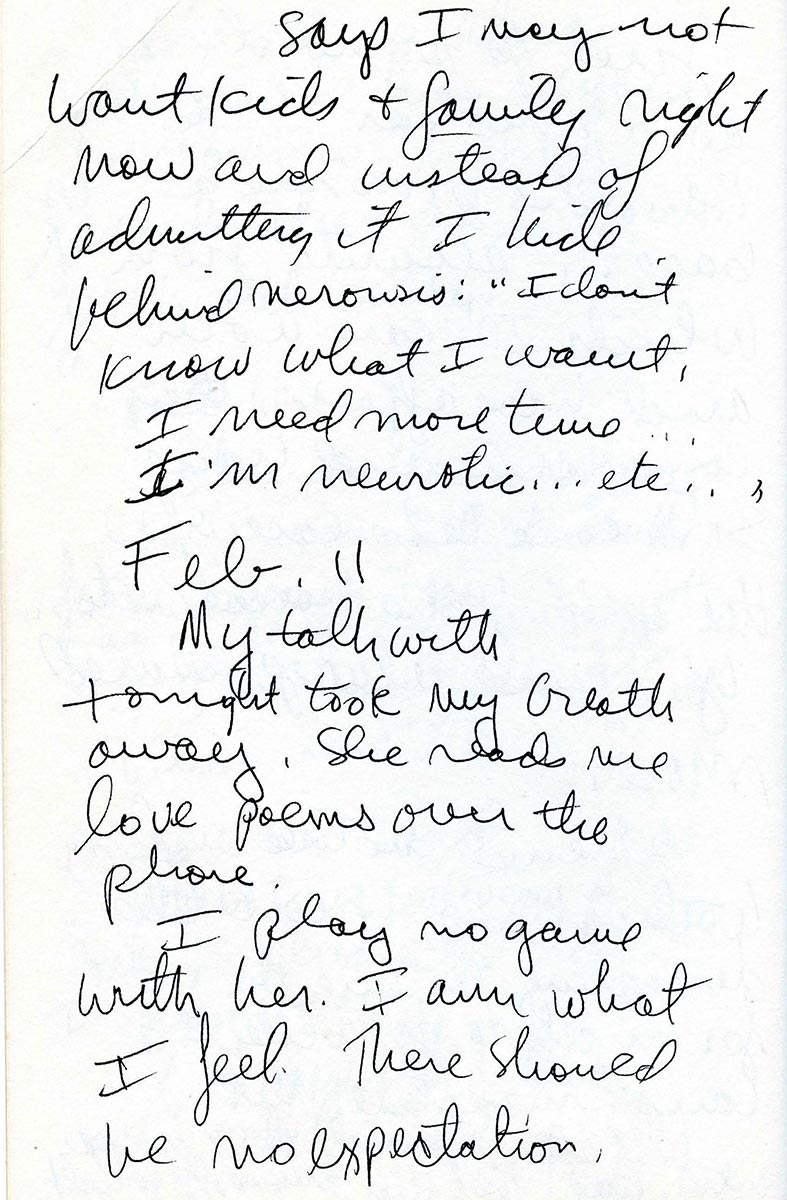 says I may not
want kids + family right
now and instead of
admitting it I hide
behind nerowsis: "I don't
know what I want,
I need more time...
I'm neurotic... etc...,
Feb. 11
My talk with
tonight took my breath
away. She reads me
love poems over the
phone.
I play no game
with her. I am what
I feel. There should
be no expestation.